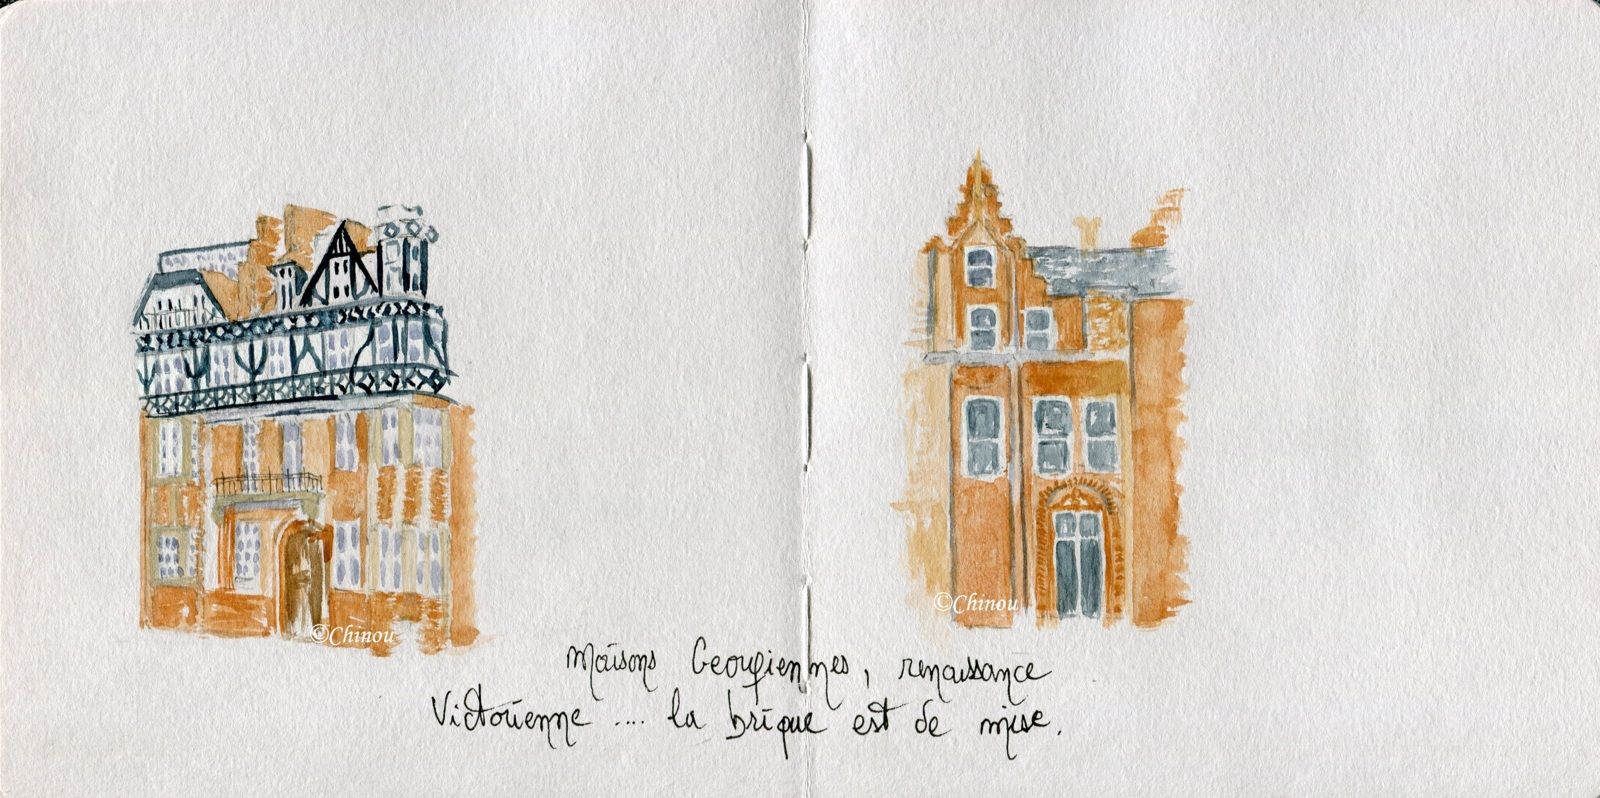 ©Chinou
©Chinou
Maisons Georgiennes, renaissance
Victorienne .... la brique est de mise.